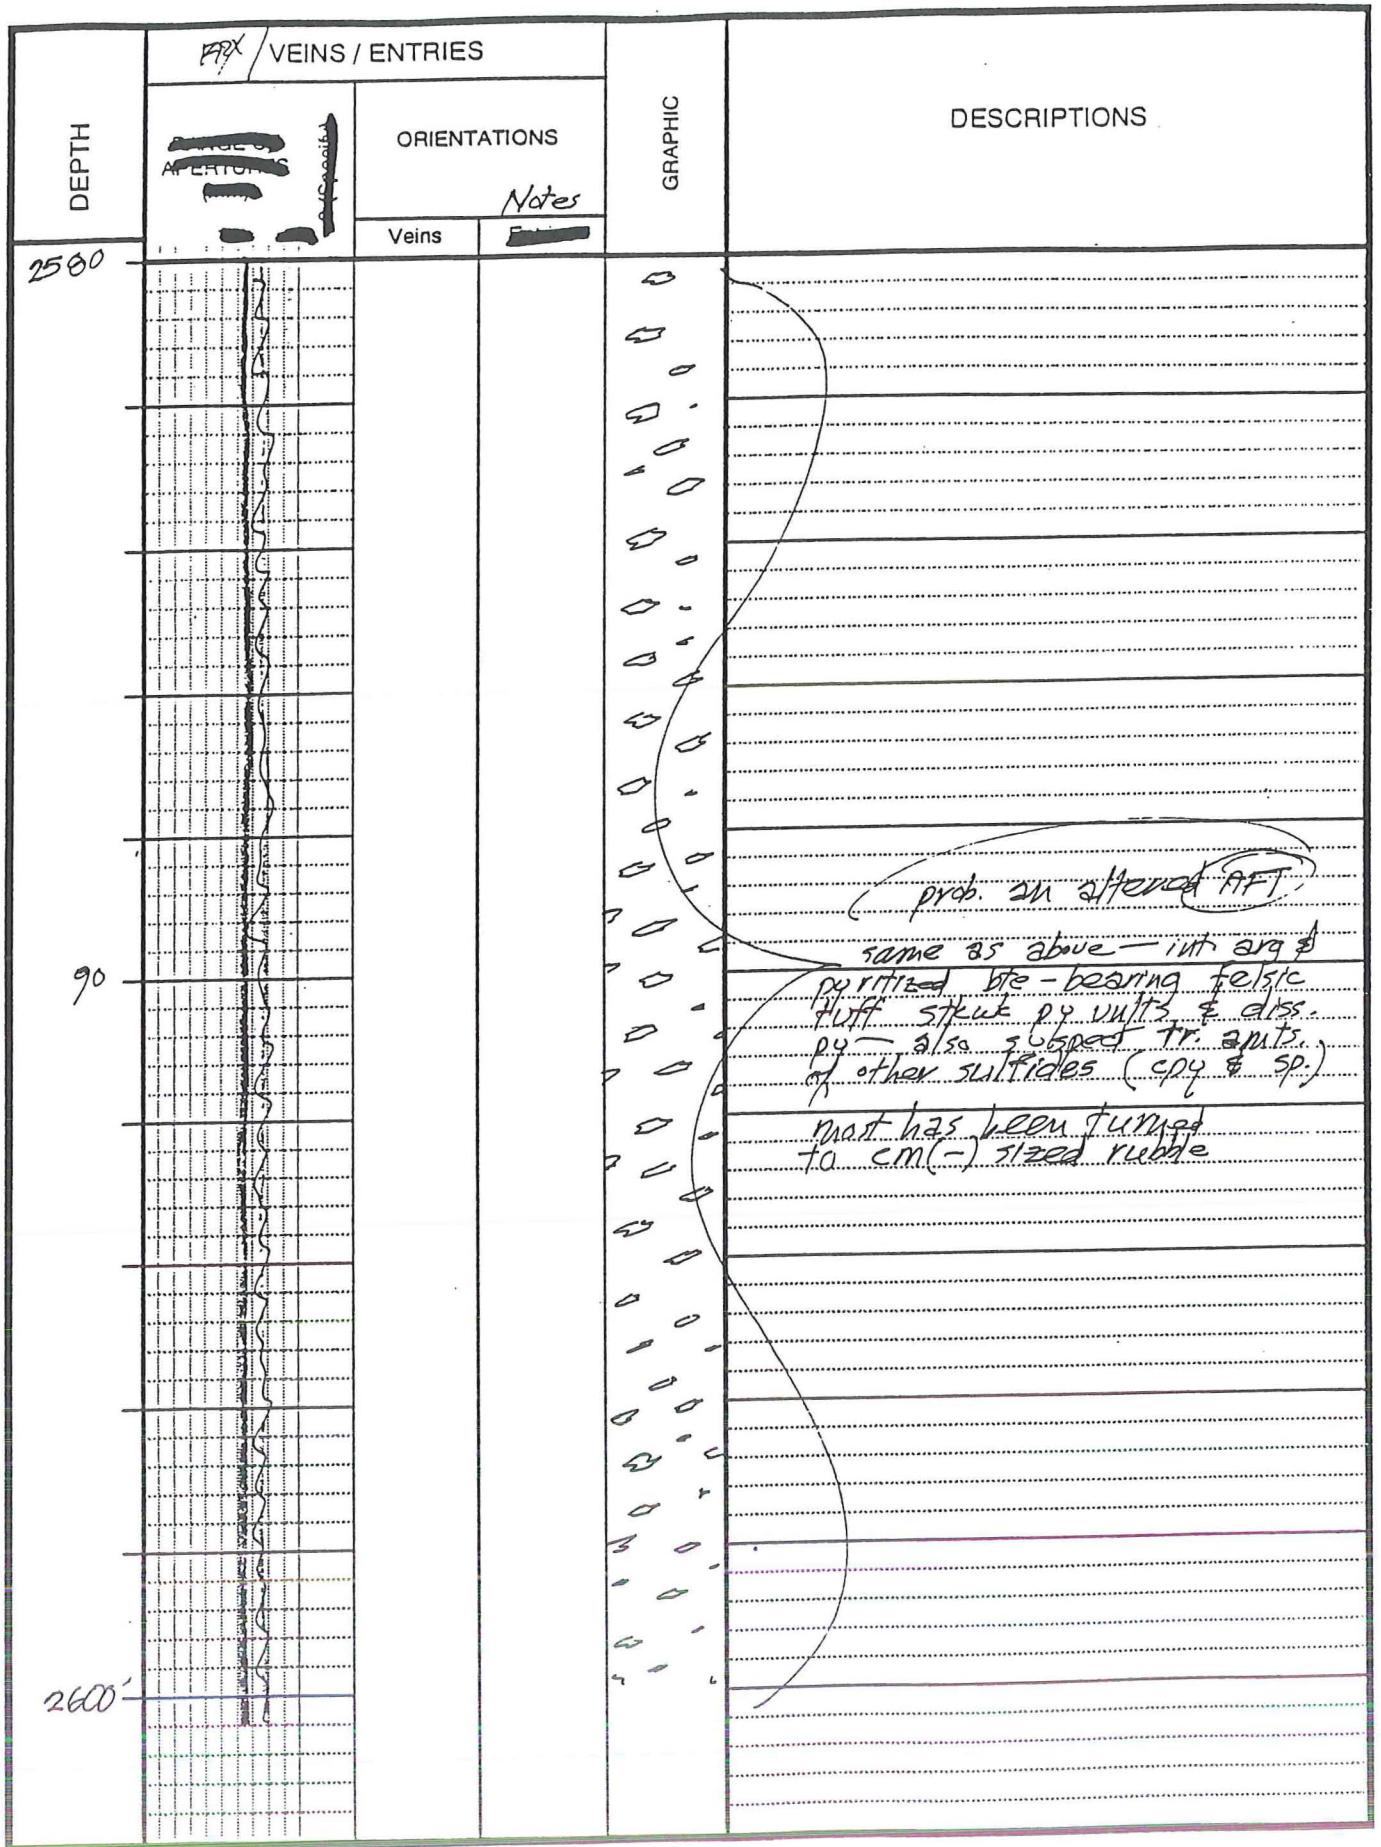 FRX / VEINS / ENTRIES
DEPTH
ORIENTATIONS
Notes
Veins
GRAPHIC
DESCRIPTIONS
2580
prob. an altered AFT
same as above — int arg &
90
pyritized bte-bearing felsic
tuff stkwk py vnlts & diss.
py — also suspect tr. amts.
of other sulfides (cpy & sp.)
most has been turned
to cm(-) sized rubble
2600'